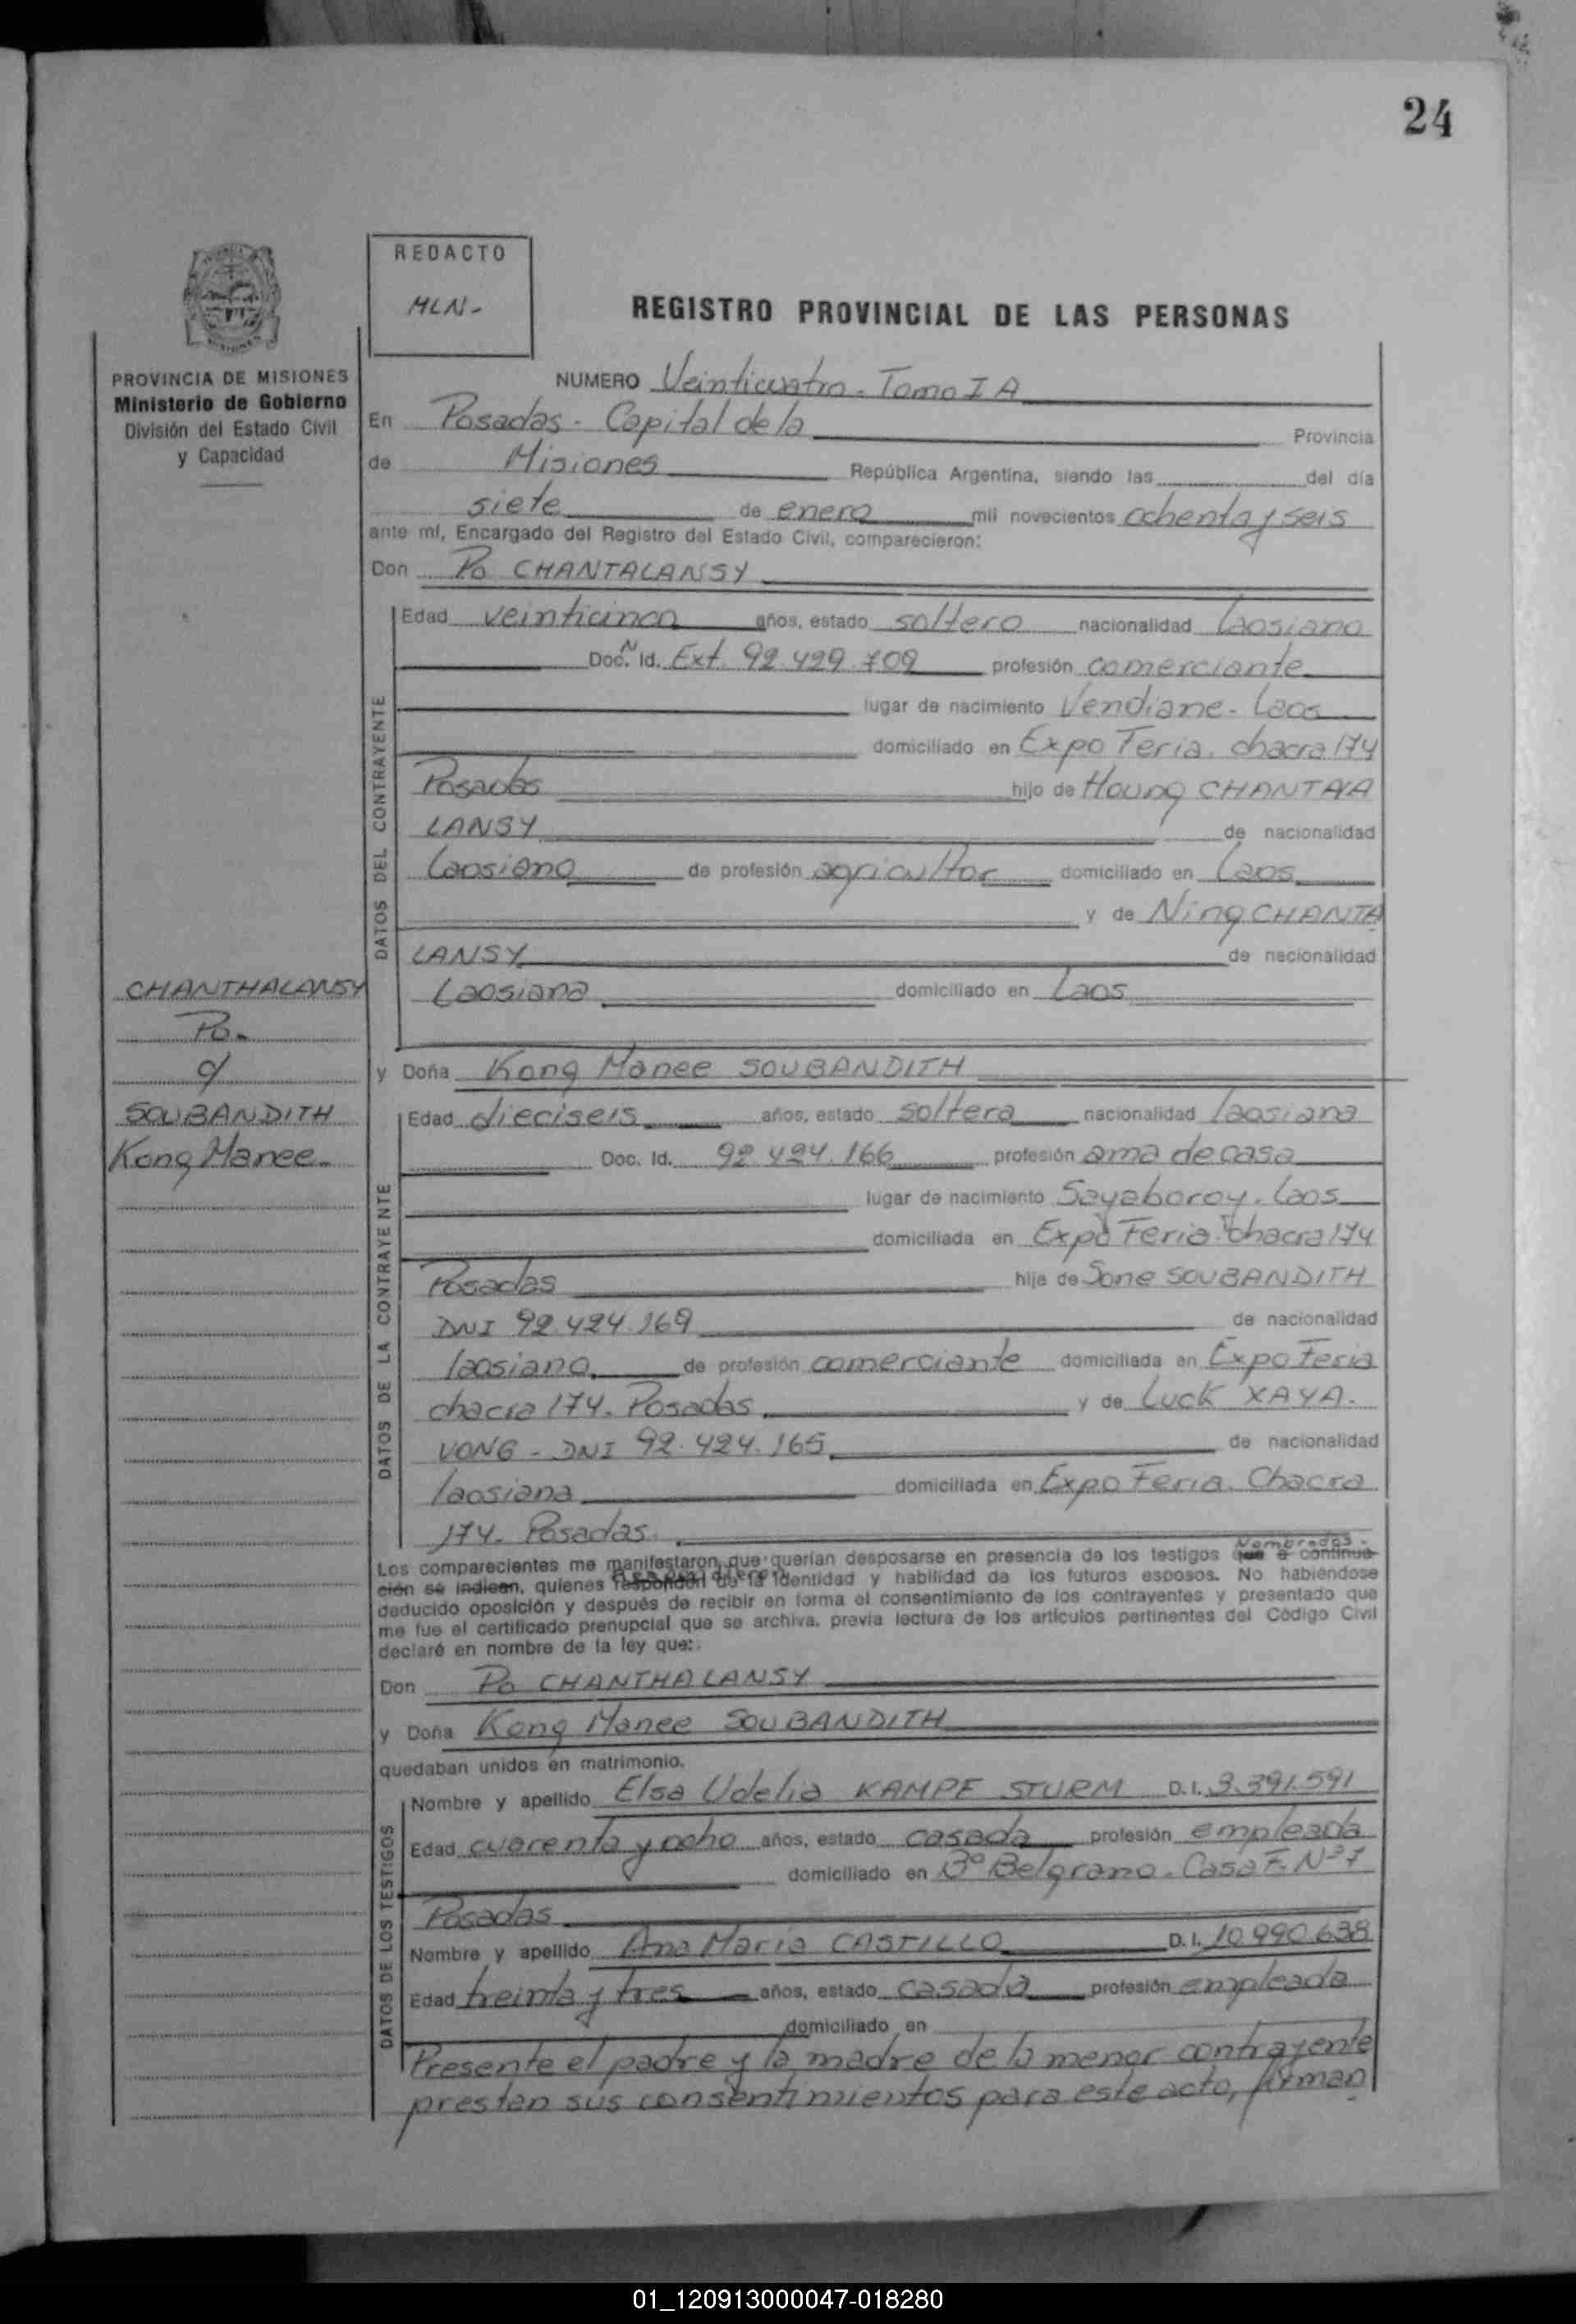 24
REDACTO
MLN-
REGISTRO PROVINCIAL DE LAS PERSONAS
PROVINCIA DE MISIONES
Ministerio de Gobierno
División del Estado Civil
y Capacidad
NUMERO Veinticuatro - Tomo I A
En Posadas - Capital de la Provincia
de Misiones República Argentina, siendo las del día
siete de enero mil novecientos ochenta y seis
ante mí, Encargado del Registro del Estado Civil, comparecieron:
Don Po CHANTALANSY
DATOS DEL CONTRAYENTE
Edad veinticinco años, estado soltero nacionalidad laosiano
Doc. N Id. Ext. 92.429.709 profesión comerciante
lugar de nacimiento Vendiane - Laos
domiciliado en Expo Feria. chacra 174
Posadas hijo de Houng CHANTALA
LANSY de nacionalidad
laosiano de profesión agricultor domiciliado en Laos
y de Ning CHANTA
LANSY de nacionalidad
Laosiana domiciliado en Laos
CHANTHALANSY
Po.
c/
SOUBANDITH
Kong Manee.
y Doña Kong Manee SOUBANDITH
DATOS DE LA CONTRAYENTE
Edad dieciseis años, estado soltera nacionalidad laosiana
Doc. Id. 92.424.166 profesión ama de casa
lugar de nacimiento Sayaboroy. Laos
domiciliada en Expo Feria. chacra 174
Posadas hija de Sone SOUBANDITH
DNI 92.424.169 de nacionalidad
laosiano de profesión comerciante domiciliada en Expo Feria
chacra 174. Posadas y de Luck XAYA.
VONG - DNI 92.424.165 de nacionalidad
laosiana domiciliada en Expo Feria. Chacra
174. Posadas.
Los comparecientes me manifestaron que querían desposarse en presencia de los testigos Nombrados - que a continua-
ción se indican, quienes respondieron responden de la identidad y habilidad de los futuros esposos. No habiéndose
deducido oposición y después de recibir en forma el consentimiento de los contrayentes y presentado que
me fue el certificado prenupcial que se archiva, previa lectura de los artículos pertinentes del Código Civil
declaré en nombre de la ley que:
Don Po CHANTHALANSY
y Doña Kong Manee SOUBANDITH
quedaban unidos en matrimonio.
DATOS DE LOS TESTIGOS
Nombre y apellido Elsa Udelia KAMPF STURM D.I. 3.391.591
Edad cuarenta y ocho años, estado casada profesión empleada
domiciliado en Bº Belgrano - Casa F. Nº 7
Posadas
Nombre y apellido Ana Maria CASTILLO D.I. 10.990.638
Edad treinta y tres años, estado casada profesión empleada
domiciliado en
Presente el padre y la madre de la menor contrayente
prestan sus consentimientos para este acto, firman
01_120913000047-018280